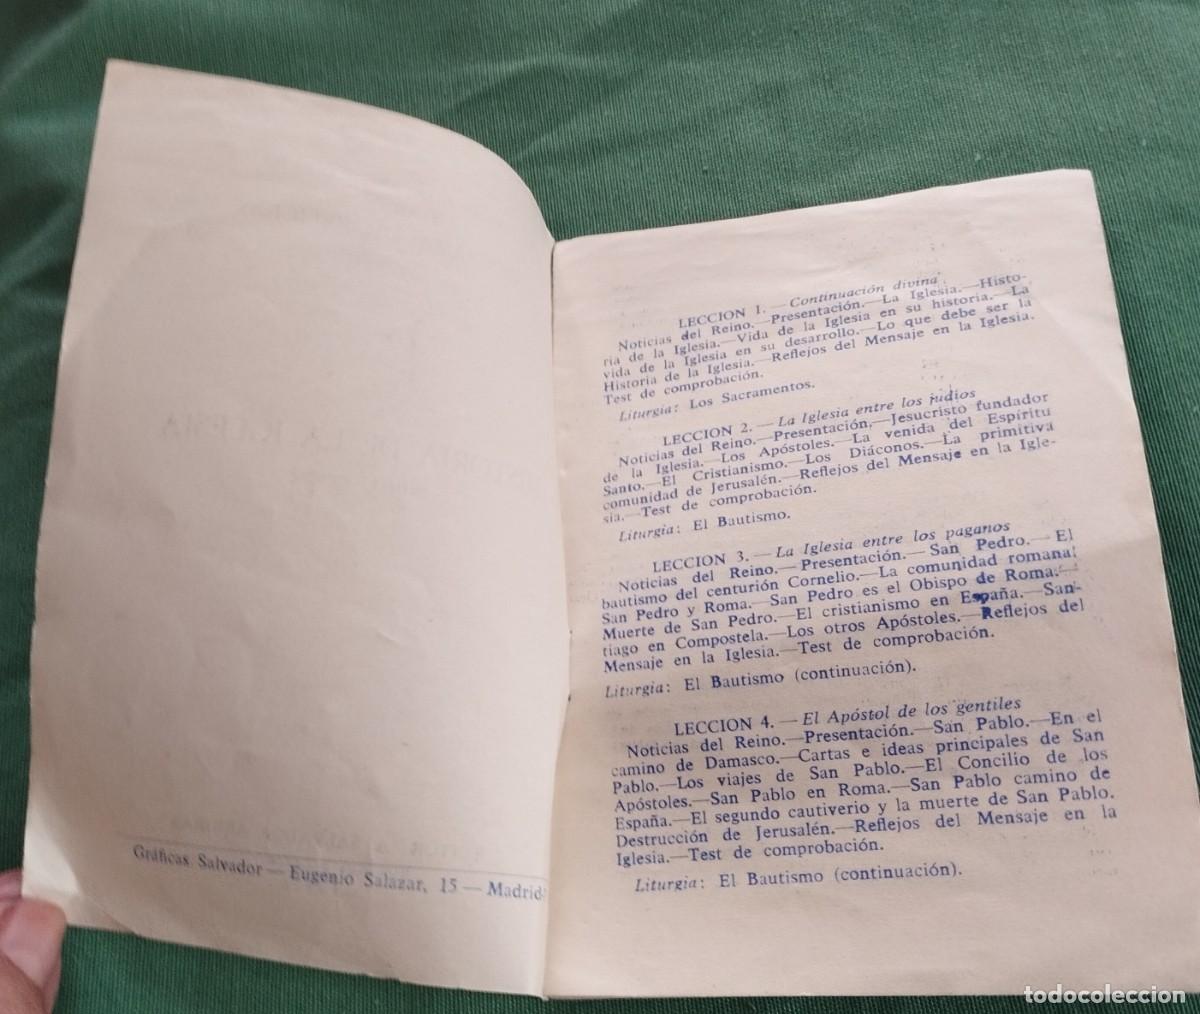 Gráficas Salvador — Eugenio Salazar, 15 — Madrid-
LECCION 1. — Continuación divina
Noticias del Reino.—Presentación.—La Iglesia.—Histo-
ria de la Iglesia.—Vida de la Iglesia en su historia.—La
vida de la Iglesia en su desarrollo.—Lo que debe ser la
Historia de la Iglesia.—Reflejos del Mensaje en la Iglesia.
Test de comprobación.
Liturgia: Los Sacramentos.
LECCION 2. — La Iglesia entre los judíos
Noticias del Reino.—Presentación,—Jesucristo fundador
de la Iglesia.—Los Apóstoles.—La venida del Espíritu
Santo.—El Cristianismo.—Los Diáconos.—La primitiva
comunidad de Jerusalén.—Reflejos del Mensaje en la Igle-
sia.—Test de comprobación.
Liturgia: El Bautismo.
LECCION 3. — La Iglesia entre los paganos
Noticias del Reino.—Presentación.— San Pedro.— El
bautismo del centurión Cornelio.—La comunidad romana:
San Pedro y Roma.—San Pedro es el Obispo de Roma.—
Muerte de San Pedro.—El cristianismo en España.—San-
tiago en Compostela.—Los otros Apóstoles.—Reflejos del
Mensaje en la Iglesia.—Test de comprobación.
Liturgia: El Bautismo (continuación).
LECCION 4. — El Apóstol de los gentiles
Noticias del Reino.—Presentación.—San Pablo.—En el
camino de Damasco.—Cartas e ideas principales de San
Pablo.—Los viajes de San Pablo.—El Concilio de los
Apóstoles.—San Pablo en Roma.—San Pablo camino de
España.—El segundo cautiverio y la muerte de San Pablo.
Destrucción de Jerusalén.—Reflejos del Mensaje en la
Iglesia.—Test de comprobación.
Liturgia: El Bautismo (continuación).
todocoleccion